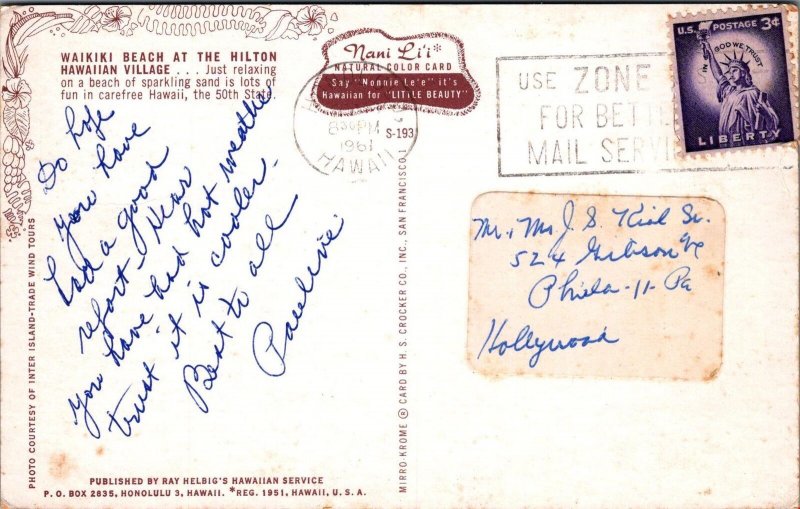 WAIKIKI BEACH AT THE HILTON
HAWAIIAN VILLAGE . . . Just relaxing
on a beach of sparkling sand is lots of
fun in carefree Hawaii, the 50th State.
Nani Li'i*
NATURAL COLOR CARD
Say "Nonnie Le'e" it's
Hawaiian for "LITTLE BEAUTY"
Do hope
you have
had a good
report - Hear
you have had hot weather
trust it is cooler.
Best to all
Pauline
PHOTO COURTESY OF INTER ISLAND-TRADE WIND TOURS
PUBLISHED BY RAY HELBIG'S HAWAIIAN SERVICE
P. O. BOX 2835, HONOLULU 3, HAWAII. *REG. 1951, HAWAII, U. S. A.
MIRRO-KROME ® CARD BY H. S. CROCKER CO., INC., SAN FRANCISCO 1
S-193
830 PM
1961
HAWAII
USE ZONE
FOR BETTE
MAIL SERVI
U.S. POSTAGE 3¢
IN GOD WE TRUST
LIBERTY
Mr, Mrs J. S. Sr.
524 Gibson Ave
Phila-11-Pa
Hollywood